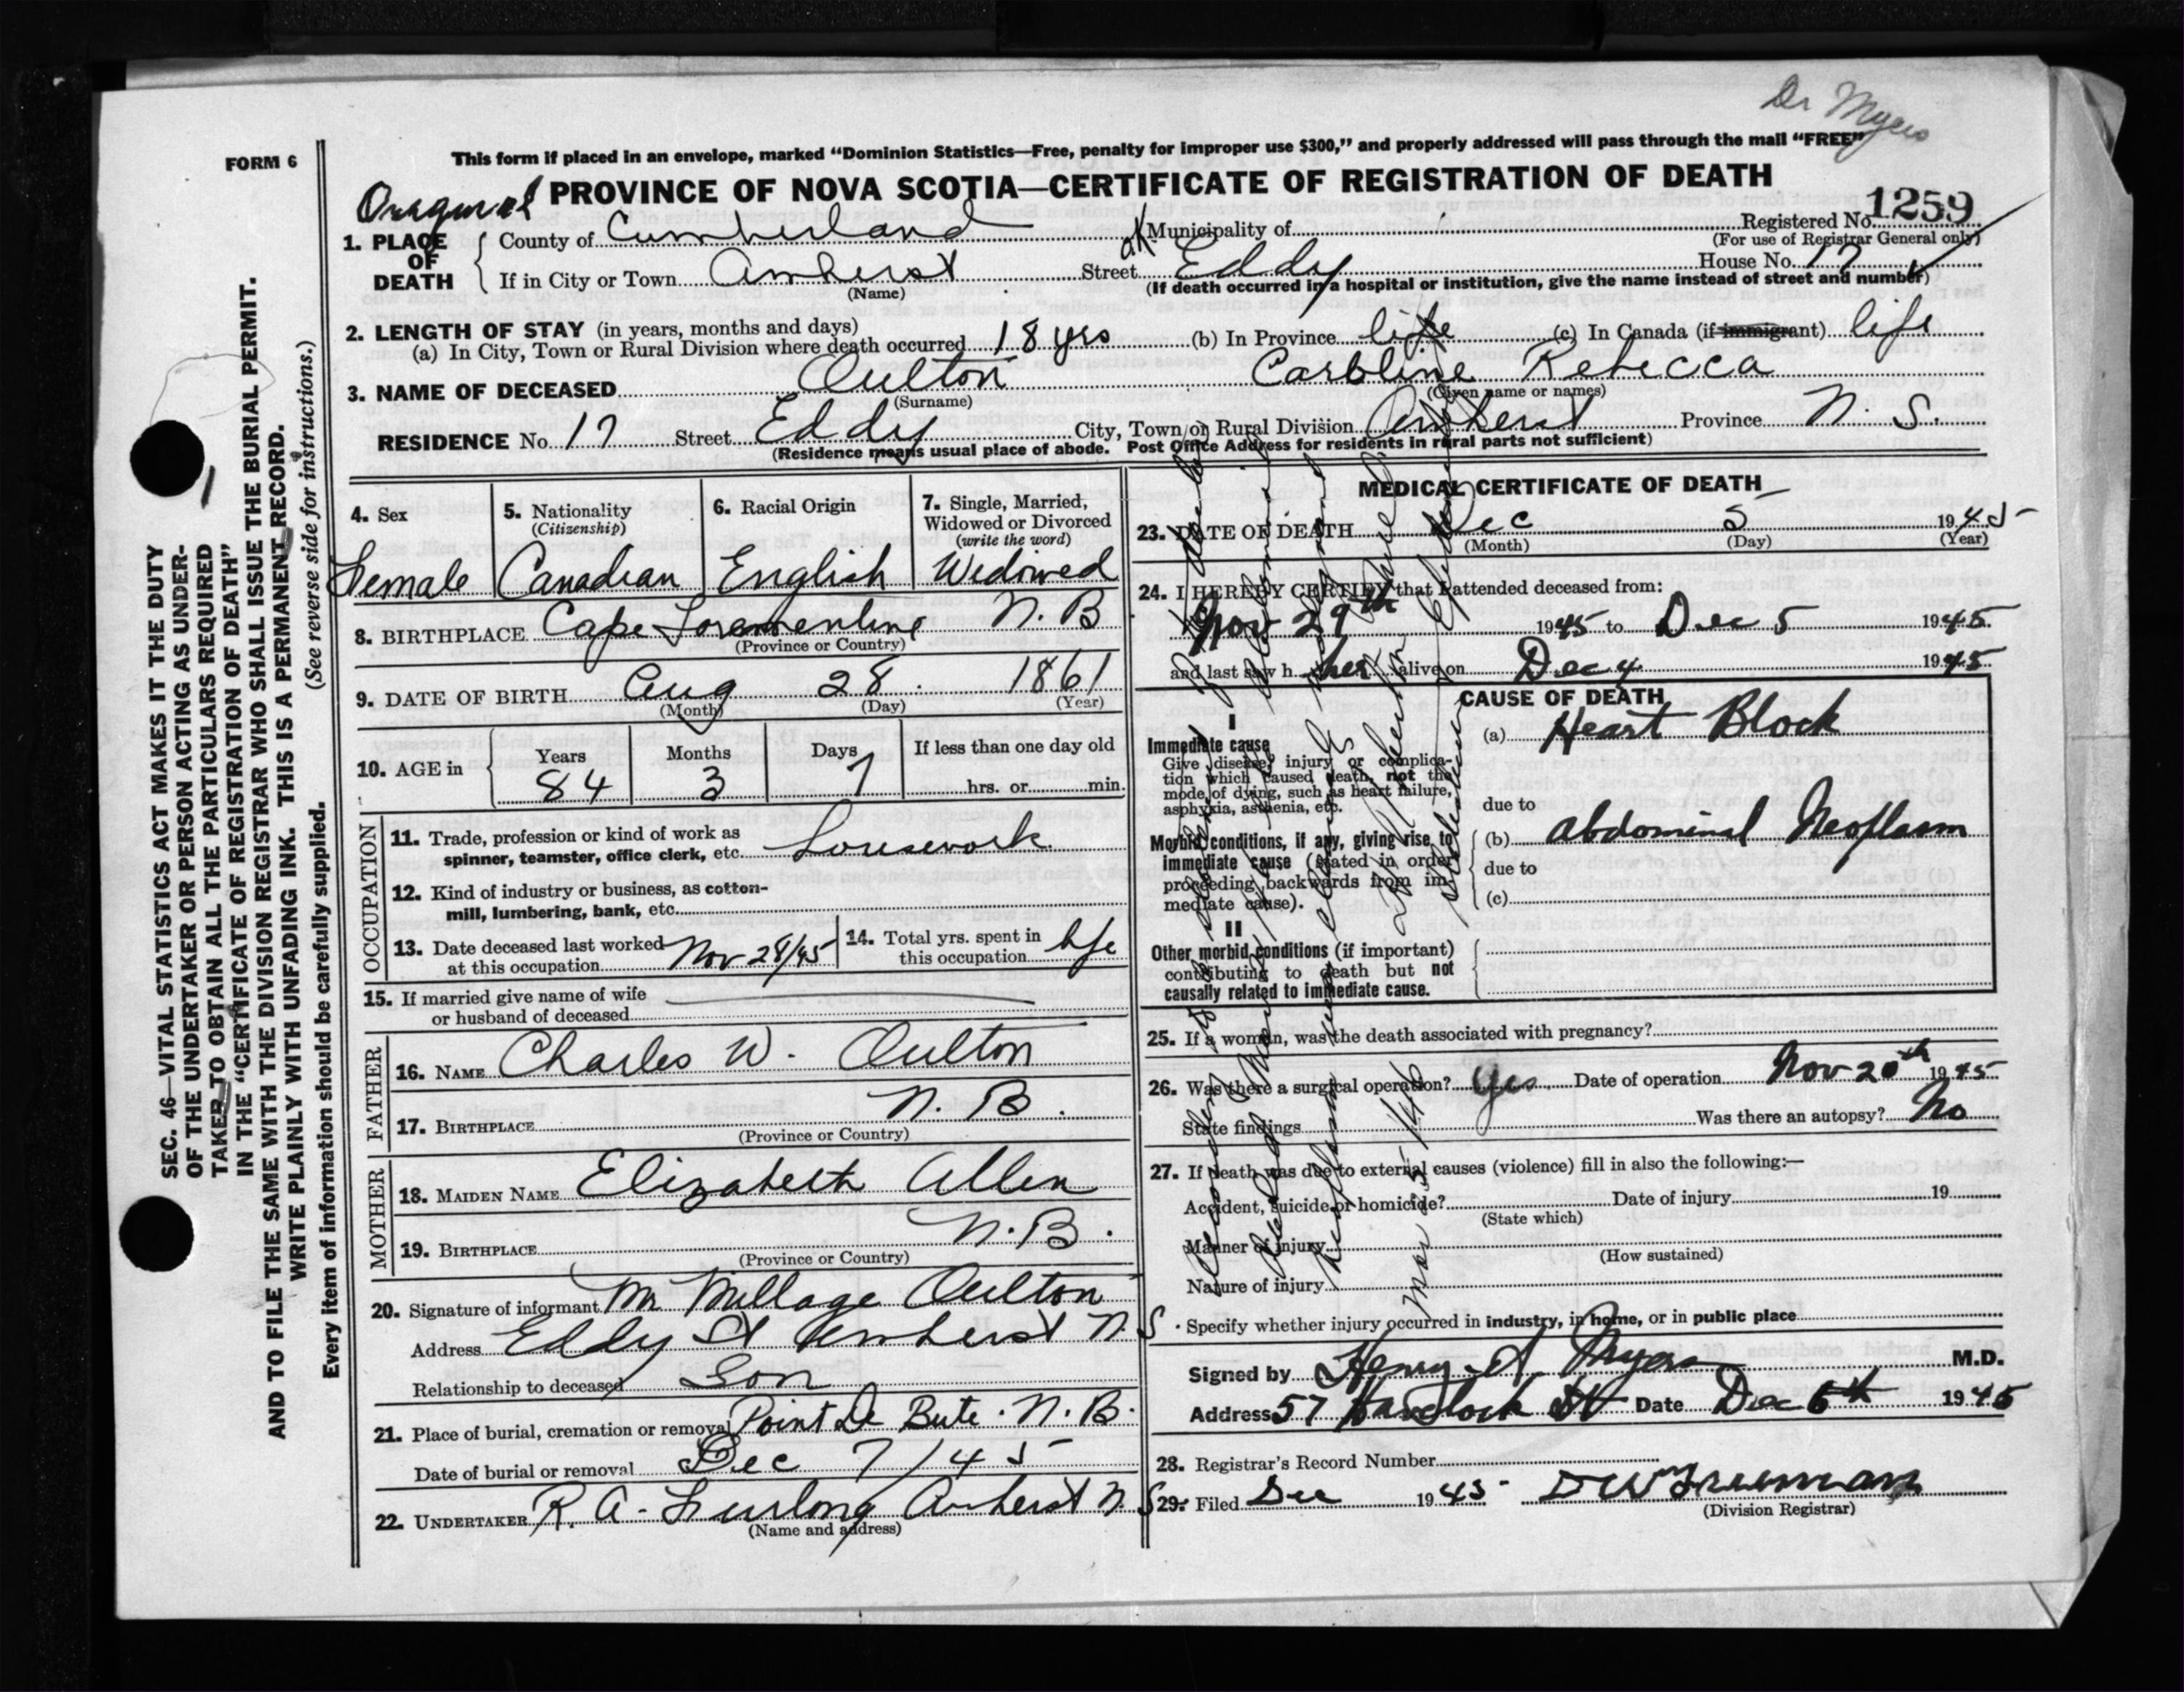 Dr Myers
FORM 6
This form if placed in an envelope, marked "Dominion Statistics—Free, penalty for improper use $300," and properly addressed will pass through the mail "FREE"
Oragunal PROVINCE OF NOVA SCOTIA—CERTIFICATE OF REGISTRATION OF DEATH
1. PLACE OF DEATH { County of Cumberland Municipality of Registered No. 1259
(For use of Registrar General only)
If in City or Town Amherst Street Eddy House No. 17
(Name) (If death occurred in a hospital or institution, give the name instead of street and number)
2. LENGTH OF STAY (in years, months and days)
(a) In City, Town or Rural Division where death occurred 18 yrs (b) In Province life (c) In Canada (if immigrant) life
3. NAME OF DECEASED Oulton Caroline Rebecca
(Surname) (Given name or names)
RESIDENCE No. 17 Street Eddy City, Town or Rural Division Amherst Province N. S.
(Residence means usual place of abode. Post Office Address for residents in rural parts not sufficient)
4. Sex 5. Nationality 6. Racial Origin 7. Single, Married,
(Citizenship) Widowed or Divorced
(write the word)
Female Canadian English Widowed
8. BIRTHPLACE Cape N. B
(Province or Country)
9. DATE OF BIRTH Aug 28 1861
(Month) (Day) (Year)
10. AGE in { Years Months Days If less than one day old
84 3 7 hrs. or min.
OCCUPATION
11. Trade, profession or kind of work as
spinner, teamster, office clerk, etc. Housework
12. Kind of industry or business, as cotton-
mill, lumbering, bank, etc.
13. Date deceased last worked
at this occupation Nov 28/45
14. Total yrs. spent in
this occupation life
15. If married give name of wife
or husband of deceased
FATHER
16. NAME Charles W. Oulton
17. BIRTHPLACE N. B.
(Province or Country)
MOTHER
18. MAIDEN NAME Elizabeth Allen
19. BIRTHPLACE N. B.
(Province or Country)
20. Signature of informant Mr Millage Oulton
Address Eddy St Amherst N. S.
Relationship to deceased Son
21. Place of burial, cremation or removal Point De Bute. N. B.
Date of burial or removal Dec 7/45
22. UNDERTAKER R. A. Furlong Amherst N. S
(Name and address)
MEDICAL CERTIFICATE OF DEATH
23. DATE OF DEATH Dec 5 1945
(Month) (Day) (Year)
24. I HEREBY CERTIFY that I attended deceased from:
Nov 29th 1945 to Dec 5 1945
and last saw h her alive on Dec 4 1945
CAUSE OF DEATH
I
Immediate cause
Give disease, injury or complica-
tion which caused death, not the
mode of dying, such as heart failure,
asphyxia, asthenia, etc.
(a) Heart Block
due to
Morbid conditions, if any, giving rise to
immediate cause (stated in order
proceeding backwards from im-
mediate cause).
(b) Abdominal Neoplasm
due to
(c)
II
Other morbid conditions (if important)
contributing to death but not
causally related to immediate cause.
25. If a woman, was the death associated with pregnancy?
26. Was there a surgical operation? Yes Date of operation Nov 20th 1945
State findings Was there an autopsy? No
27. If death was due to external causes (violence) fill in also the following:—
Accident, suicide or homicide? Date of injury 19
(State which)
Manner of injury
(How sustained)
Nature of injury
Specify whether injury occurred in industry, in home, or in public place
Signed by Henry A Myers M.D.
Address 57 Havelock St Date Dec 6th 1945
28. Registrar's Record Number
29. Filed Dec 1945 D W Freeman
(Division Registrar)
SEC. 46—VITAL STATISTICS ACT MAKES IT THE DUTY
OF THE UNDERTAKER OR PERSON ACTING AS UNDER-
TAKER TO OBTAIN ALL THE PARTICULARS REQUIRED
IN THE "CERTIFICATE OF REGISTRATION OF DEATH"
AND TO FILE THE SAME WITH THE DIVISION REGISTRAR WHO SHALL ISSUE THE BURIAL PERMIT.
WRITE PLAINLY WITH UNFADING INK. THIS IS A PERMANENT RECORD.
Every item of information should be carefully supplied. (See reverse side for instructions.)